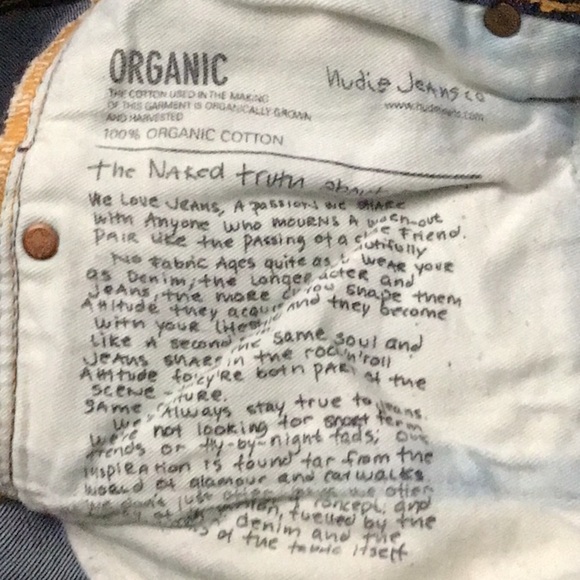 ORGANIC
THE COTTON USED IN THE MAKING
OF THIS GARMENT IS ORGANICALLY GROWN
AND HARVESTED
100% ORGANIC COTTON
Nudie Jeans co
www.nudiejeans.com
The Naked truth about
We Love Jeans, A passion we share
with Anyone who mourns A worn-out
pair like the passing of a close friend.
No Fabric Ages quite as beautifully
as Denim; the longer you wear your
Jeans, the more character and
Attitude they acquire. You shape them
with your lifestyle and they become
like a second
Jeans share the same soul and
Attitude found in the rock'n'roll
scene they're both part of the
same culture.
We Always stay true to jeans.
we're not looking for short term
trends or fly-by-night fads; our
inspiration is found far from the
world of glamour and catwalks
We don't just offer we offer
concept; and
fuelled by the
denim and the
of the fabric itself